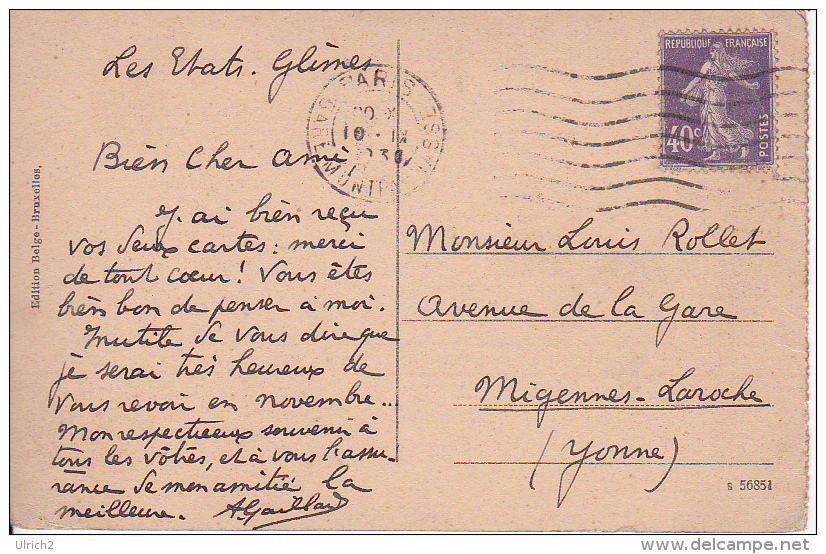 Les Etats. Glimes
Bien Cher ami
J'ai bien reçu
vos deux cartes : merci
de tout coeur! Vous êtes
bien bon de penser à moi.
Inutile de vous dire que
je serai très heureux de
vous revoir en novembre..
Mon respectueux souvenir à
tous les vôtres, et à vous l'assu-
rance de mon amitié la
meilleure. AGaillard
Edition Belge - Bruxelles.
PARIS
GARE
REPUBLIQUE FRANÇAISE
40c
POSTES
Monsieur Louis Rollet
Avenue de la Gare
Migennes-Laroche
(Yonne)
S 56851
Ulrich2
delcampe.net